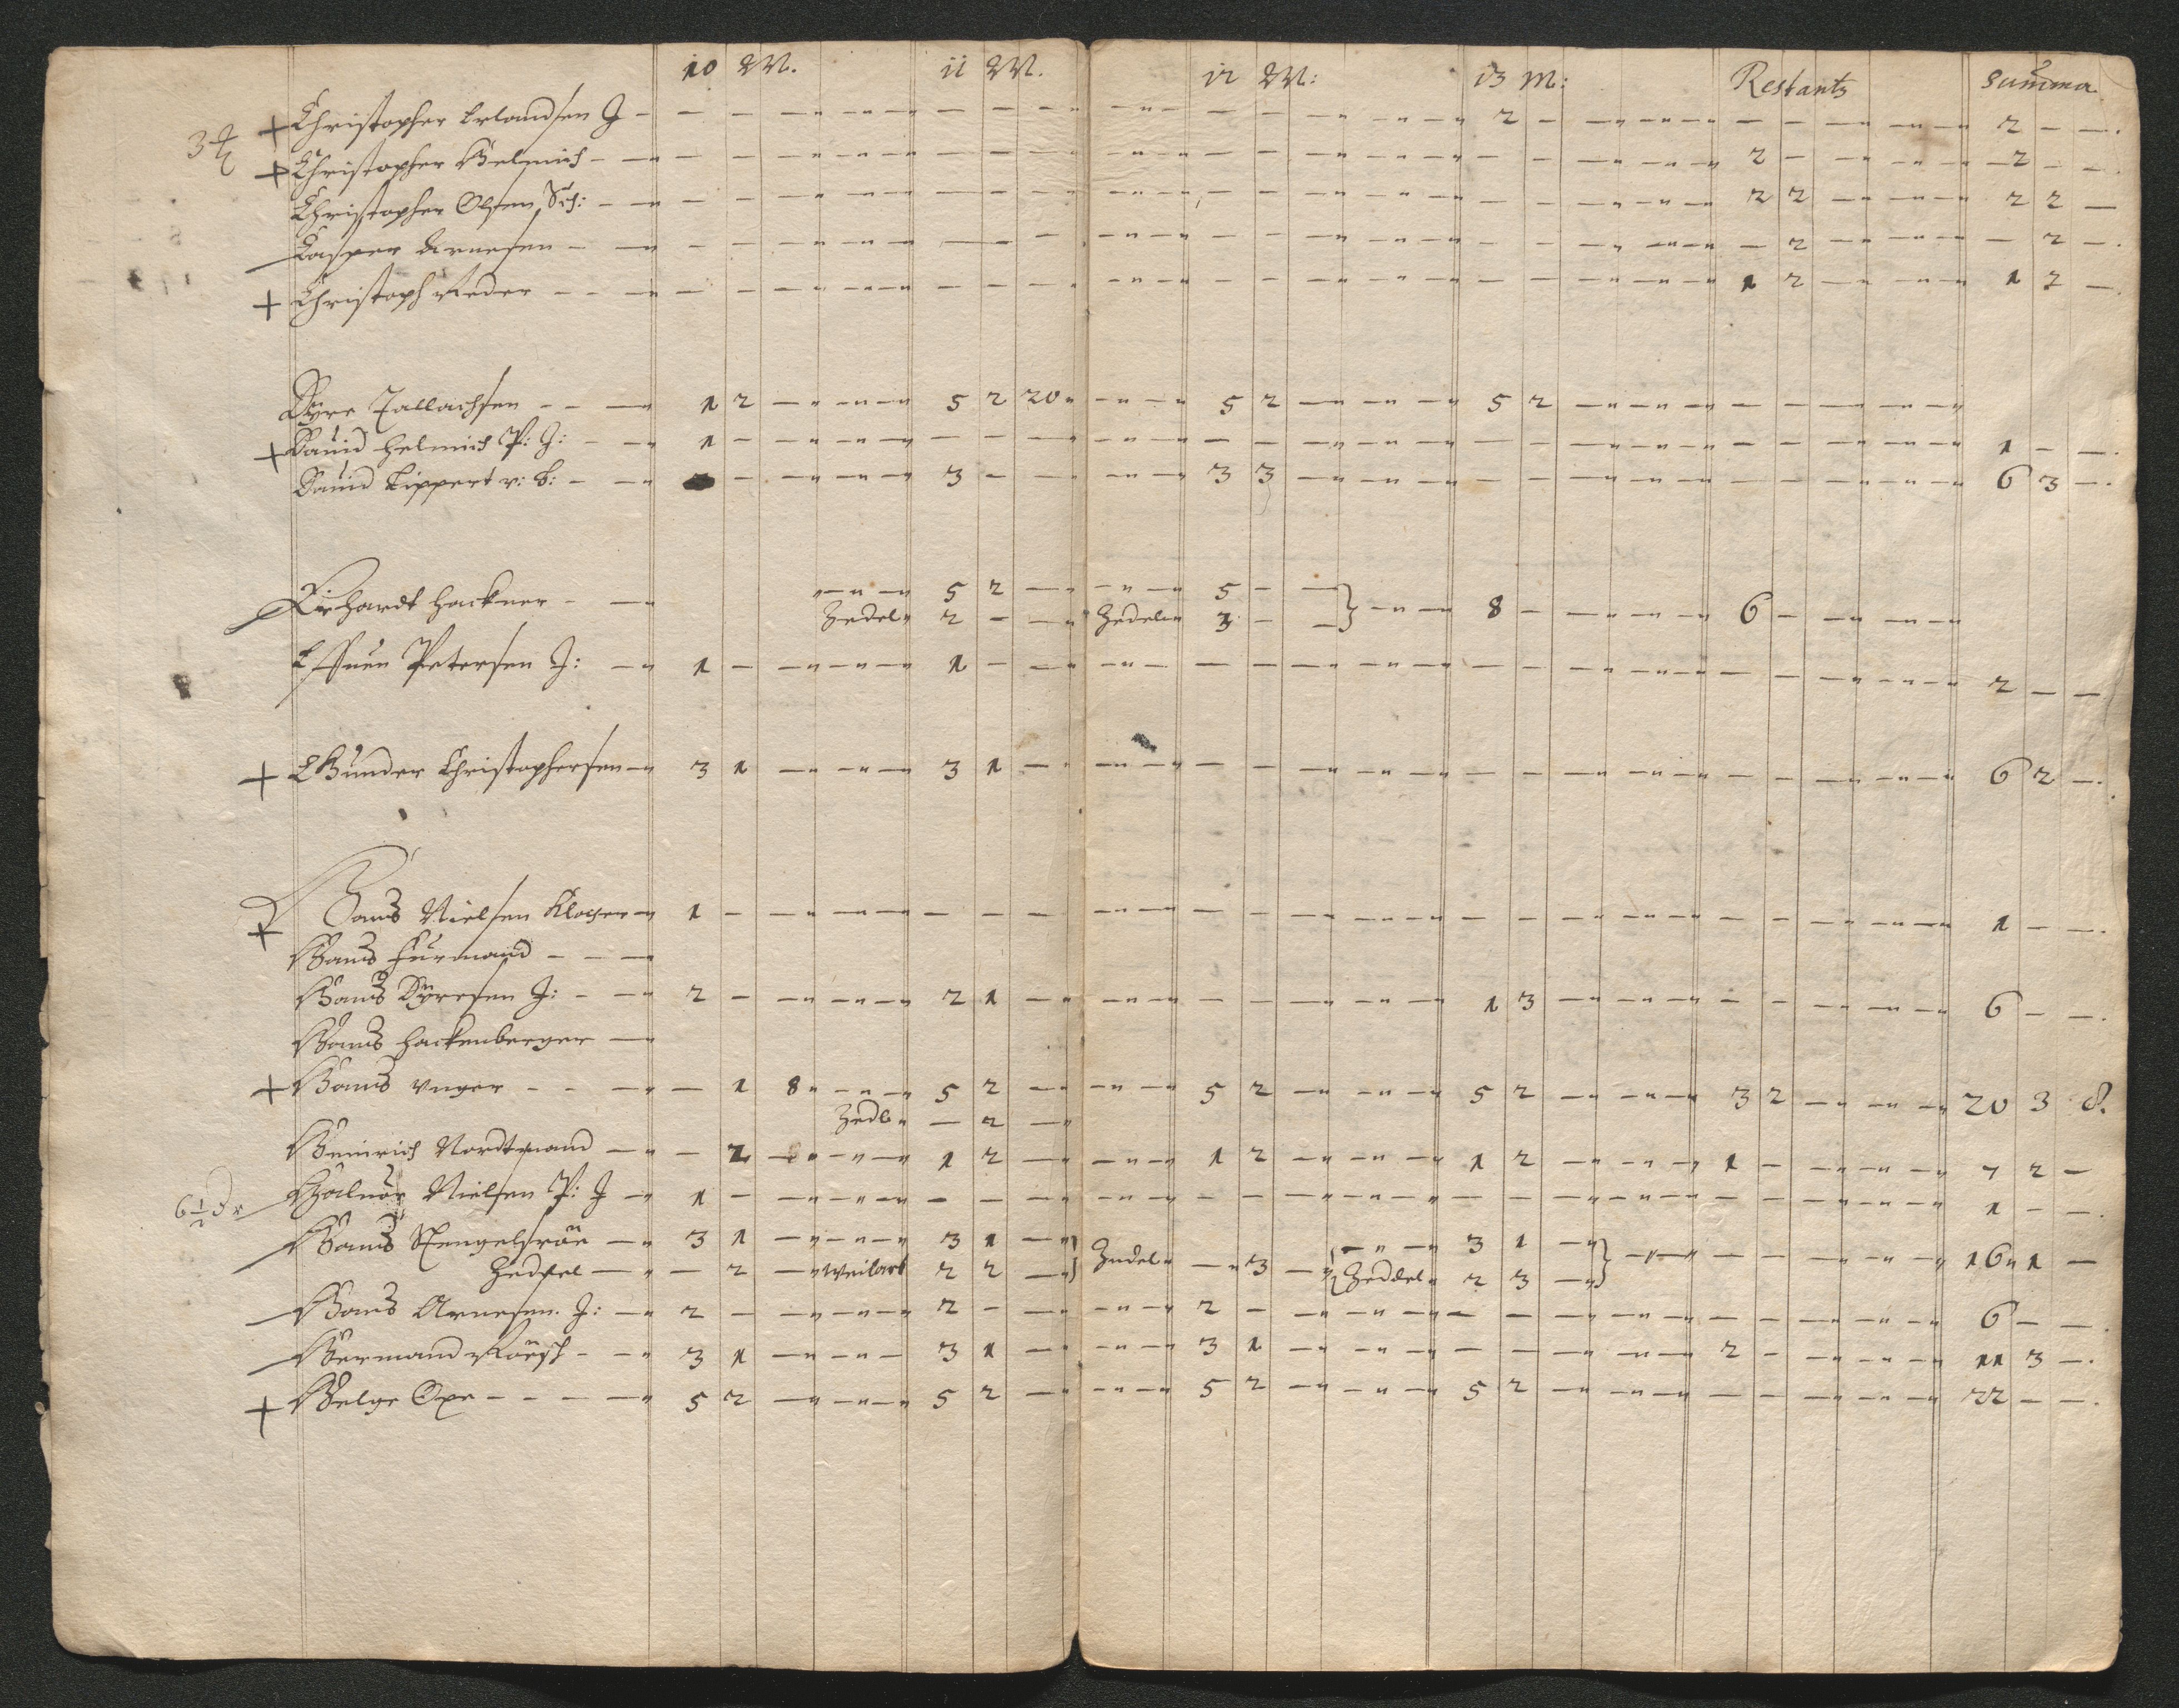 10 M. 11 M. 12 M: 13 M: Restants Summa
+ Christopher Erlandsen J – – – – – – – 2 – – – – 2 – –.
+ Christopher Helmich – – – – – – – – – – 2 – – 2 – –
Christopher Olsen Sch: – – – – – – – – – – 2 2 – 2 2 –
Casper Arnesen – – – – – – – – – – – 2 – – 2 –.
+ Christoph Reder – – – – – – – – – – 1 2 – 1 2 –.
Dyre Tallachsen – – 1 2 – 5 2 20 5 2 – 5 2 – – – –
+ Dauid Helmich P: J: – 1 – – – – – – – – – – – – – – 1 – –.
Dauid Lippert v: b: – – – 3 – – 3 3 – – – – – – – 6 3 –.
hackner – – 5 2 – 5 – – } 8 – – 6 – –
Zedel 2 – – Zedel 3 – –
Petersen J: – 1 – – 1 – – – – – – – – – – – 2 – –
+ Gunder Christophersen – 3 1 – 3 1 – – – – – – – – – – 6 2 –.
+ Hans Nielsen – 1 – – – – – – – – – – – – – – 1 – –.
Hans Furmand – – –
Hans Dyresen J: – – 2 – – 2 1 – – – – 1 3 – – – – 6 – –.
Hans Hackenberger –
+ Hans Vnger – – – – 1 8 5 2 – 5 2 – 5 2 – 3 2 – 20 3 8.
Zedl – 2 –
Heinrich Nordtmand – – 2 – 1 2 – 1 2 – 1 2 – 1 – – 7 2 –
6 1/2 Haluor Nielsen P: J – 1 – – – – – – – – – – – – – – 1 – –.
Hans Stengelsrøe – 3 1 – 3 1 – } Zedel – 3 – { – 3 1 – } – – – 16 1 –
Zedel – – 2 – 2 2 – Zeddel 2 3 –
Hans Arnesen. J: – 2 – – 2 – – 2 – – – – – – – – 6 – –.
Hermand – – 3 1 – 3 1 – 3 1 – – – – 2 – – 11 3 –.
+ Helge Oxe – – – – 5 2 – 5 2 – 5 2 – 5 2 – – – – 22 – –.